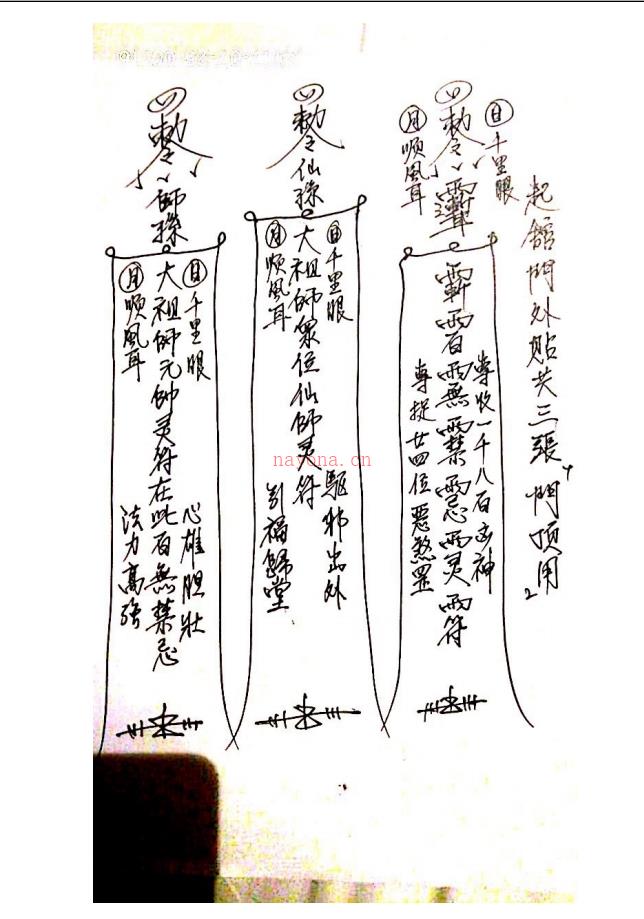 起舘門外貼共三張 門頂用
日 千里眼
敕令
月 順風耳
專收一千八百凶神
專捉廿四位惡煞罡
敕令仙孫
日 千里眼
大祖師眾位仙師灵符
月 順風耳
驅邪出外
引福歸堂
敕令师孫
日 千里眼
大祖師元帅灵符在此百無禁忌
月 順風耳
心雄胆壯
法力高强
nayona.cn